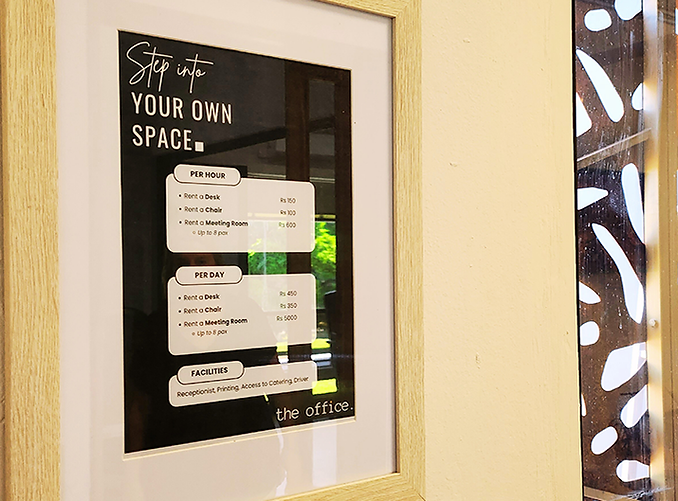 Step into
YOUR OWN
SPACE
PER HOUR
• Rent a Desk Rs 150
• Rent a Chair Rs 100
• Rent a Meeting Room Rs 600
○ Up to 8 pax
PER DAY
• Rent a Desk Rs 450
• Rent a Chair Rs 350
• Rent a Meeting Room Rs 5000
○ Up to 8 pax
FACILITIES
Receptionist, Printing, Access to Catering, Driver
the office.